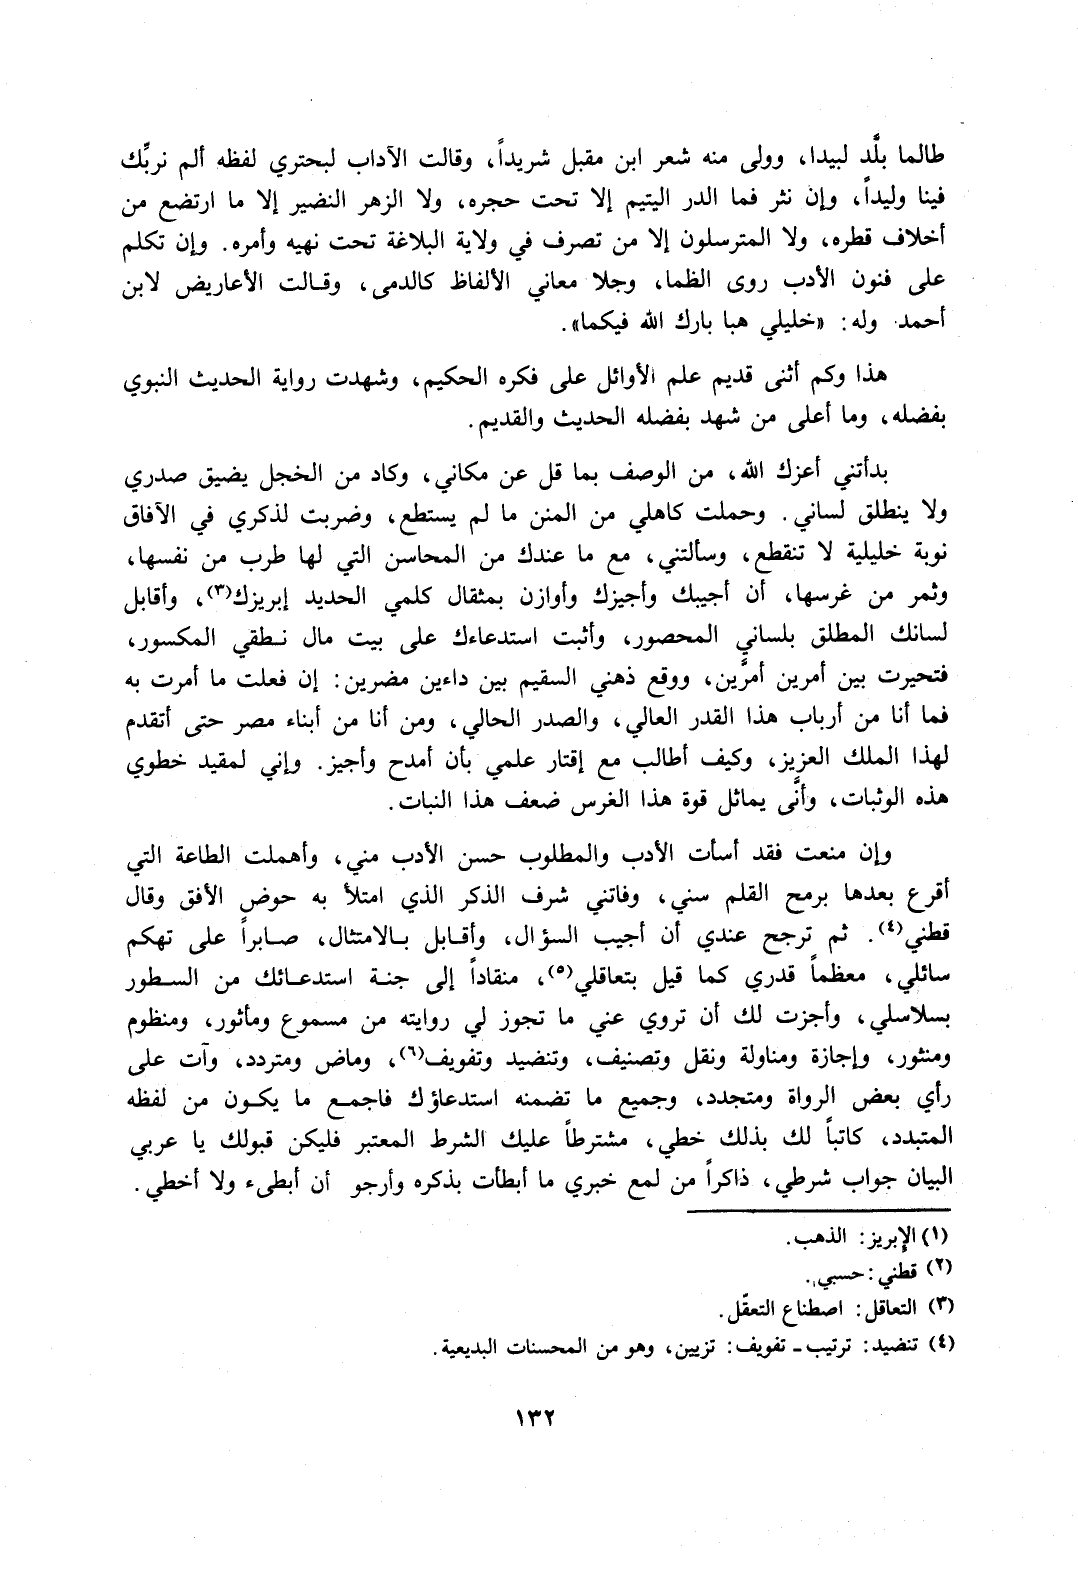 طالما بلَّد لبيدا، وولى منه شعر ابن مقبل شريداً، وقالت الآداب لبحتري لفظه ألم نربِّك
فينا وليداً، وإن نثر فما الدر اليتيم إلا تحت حجره، ولا الزهر النضير إلا ما ارتضع من
أخلاف قطره، ولا المترسلون إلا من تصرف في ولاية البلاغة تحت نهيه وأمره. وإن تكلم
على فنون الأدب روى الظما، وجلا معاني الألفاظ كالدمى، وقالت الأعاريض لابن
أحمد وله: «خليلي هبا بارك الله فيكما».
هذا وكم أثنى قديم علم الأوائل على فكره الحكيم، وشهدت رواية الحديث النبوي
بفضله، وما أعلى من شهد بفضله الحديث والقديم.
بدأتني أعزك الله، من الوصف بما قل عن مكاني، وكاد من الخجل يضيق صدري
ولا ينطلق لساني. وحملت كاهلي من المنن ما لم يستطع، وضربت لذكري في الآفاق
نوبة خليلية لا تنقطع، وسألتني، مع ما عندك من المحاسن التي لها طرب من نفسها،
وثمر من غرسها، أن أجيبك وأجيزك وأوازن بمثقال كلمي الحديد إبريزك(٣)، وأقابل
لسانك المطلق بلساني المحصور، وأثبت استدعاءك على بيت مال نطقي المكسور،
فتحيرت بين أمرين أمرَّين، ووقع ذهني السقيم بين داءين مضرين: إن فعلت ما أمرت به
فما أنا من أرباب هذا القدر العالي، والصدر الحالي، ومن أنا من أبناء مصر حتى أتقدم
لهذا الملك العزيز، وكيف أطالب مع إقتار علمي بأن أمدح وأجيز. وإني لمقيد خطوي
هذه الوثبات، وأنَّى يماثل قوة هذا الغرس ضعف هذا النبات.
وإن منعت فقد أسأت الأدب والمطلوب حسن الأدب مني، وأهملت الطاعة التي
أقرع بعدها برمح القلم سني، وفاتني شرف الذكر الذي امتلأ به حوض الأفق وقال
قطني(٤). ثم ترجح عندي أن أجيب السؤال، وأقابل بالامتثال، صابراً على تهكم
سائلي، معظماً قدري كما قيل بتعاقلي(٥)، منقاداً إلى جنة استدعائك من السطور
بسلاسلي، وأجزت لك أن تروي عني ما تجوز لي روايته من مسموع ومأثور، ومنظوم
ومنثور، وإجازة ومناولة ونقل وتصنيف، وتنضيد وتفويف(٦)، وماض ومتردد، وآت على
رأي بعض الرواة ومتجدد، وجميع ما تضمنه استدعاؤك فاجمع ما يكون من لفظه
المتبدد، كاتباً لك بذلك خطي، مشترطاً عليك الشرط المعتبر فليكن قبولك يا عربي
البيان جواب شرطي، ذاكراً من لمع خبري ما أبطأت بذكره وأرجو أن أبطىء ولا أخطي.
(١) الإبريز: الذهب.
(٢) قطني: حسبي.
(٣) التعاقل: اصطناع التعقّل.
(٤) تنضيد: ترتيب ـ تفويف: تزيين، وهو من المحسنات البديعية.
١٣٢